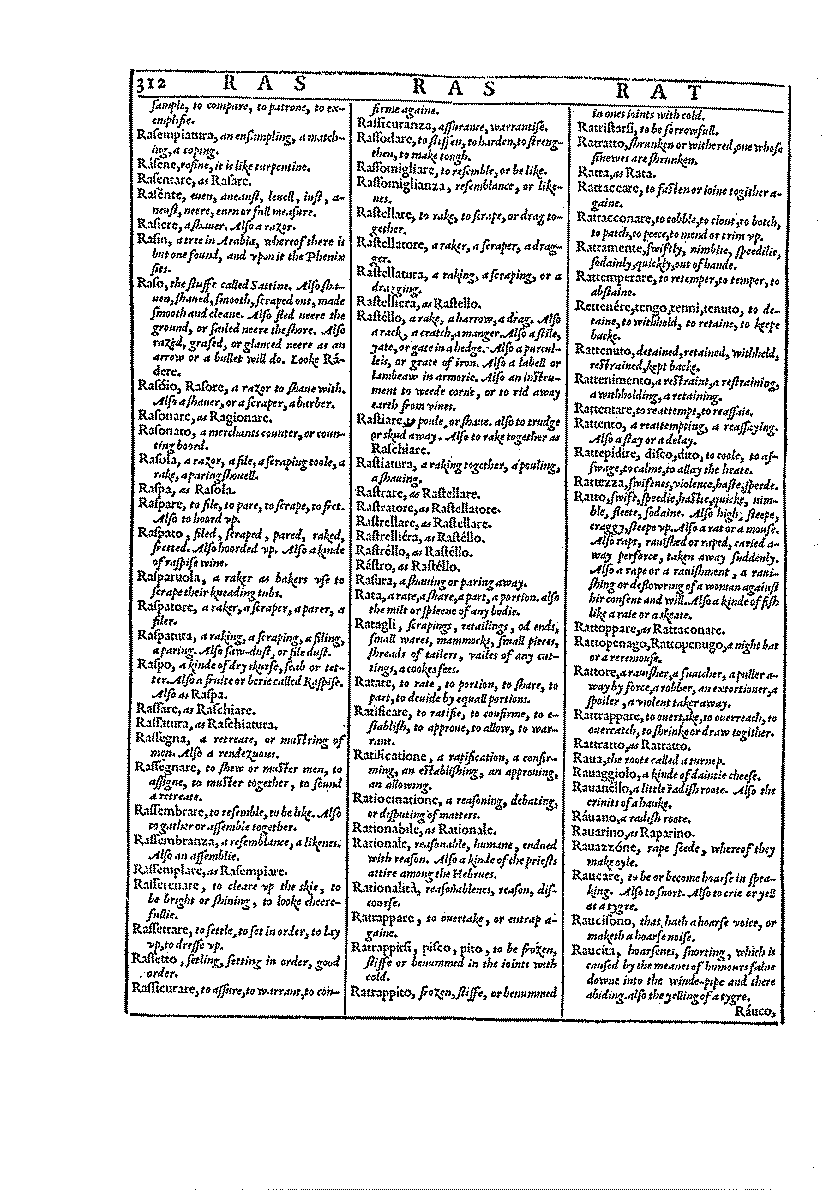 312 R A S R A S R A T
sample, to compare, to patrone, to ex-
emplifie.
Rasempiatura, an ensampling, a match-
ing, a coping.
Ráſene, rosine, it is like turpentine.
Rasentare, as Rasare.
Rasénte, euen, aneust, leuell, iust, a-
neust, neere, euen or full measure.
Rasiere, a shauer. Also a razor.
Rasin, a tree in Arabia, whereof there is
but one found, and vpon it the Phenix
sits.
Raso, the stuffe called Sattine. Also sha-
uen, shaued, smooth, scraped out, made
smooth and cleane. Also sled neere the
ground, or sailed neere the shore. Also
razed, grased, or glanced neere as an
arrow or a bullet will do. Looke Rá-
dere.
Rasóio, Rasore, a razor to shaue with.
Also a shauer, or a scraper, a barber.
Rasonare, as Ragionare.
Rasonato, a merchants counter, or coun-
ting boord.
Rasola, a razor, a file, a scraping toole, a
rake, a paring shouell.
Raspa, as Rasola.
Raspare, to file, to pare, to scrape, to fret.
Also to hoard vp.
Raspato, filed, scraped, pared, raked,
fretted. Also hoorded vp. Also a kinde
of raspise wine.
Rasparuola, a raker as bakers vse to
scrape their kneading tubs.
Raspatore, a raker, a scraper, a parer, a
filer.
Raspatura, a raking, a scraping, a filing,
a paring. Also saw-dust, or file dust.
Raspo, a kinde of dry skurfe, scab or tet-
ter. Also a fruite or berie called Raspise.
Also as Raspa.
Rassare, as Raschiare.
Rassatura, as Raschiatura.
Rassegna, a retreate, or mustring of
men. Also a rendezuous.
Rassegnare, to shew or muster men, to
assigne, to muster together, to sound
a retreate.
Rassembrare, to resemble, to be like. Also
to gather or assemble together.
Rassembranza, a resemblance, a likenes.
Also an assemblie.
Rassemplare, as Rasempiare.
Rasserenare, to cleare vp the skie, to
be bright or shining, to looke cheere-
fullie.
Rassettare, to settle, to set in order, to lay
vp, to dresse vp.
Rassetto, setling, setting in order, good
order.
Rassicurare, to assure, to warrant, to con-
firme againe.
Rassicuranza, assurance, warrantise.
Rassodare, to stiffen, to harden, to streng-
then, to make tough.
Rassomigliare, to resemble, or be like.
Rassomiglianza, resemblance, or like-
nes.
Rastellare, to rake, to scrape, or drag to-
gether.
Rastellatore, a raker, a scraper, a drag-
ger.
Rastellatura, a raking, a scraping, or a
dragging.
Rastelliera, as Rastello.
Rastéllo, a rake, a harrow, a drag. Also
a rack, a cratch, a manger. Also a stile,
gate, or gate in a hedge. Also a parcul-
leis, or grate of iron. Also a labell or
lambeaw in armorie. Also an instru-
ment to weede corne, or to rid away
earth from vines.
Rastiare, to poule, or shaue. also to trudge
or skud away. Also to rake together as
Raschiare.
Rastiatura, a raking together, a pouling,
a shauing.
Rastrare, as Rastellare.
Rastratore, as Rastellatore.
Rastrellare, as Rastellare.
Rastrelliéra, as Rastéllo.
Rastréllo, as Rastéllo.
Rástro, as Rastéllo.
Rasura, a shauing or paring away.
Rata, a rate, a share, a part, a portion. also
the milt or spleene of any bodie.
Ratagli, scrapings, retailings, od ends,
small wares, mammocks, small pieces,
shreads of tailers, vailes of any cut-
tings, a cookes fees.
Ratare, to rate, to portion, to share, to
part, to deuide by equall portions.
Ratificare, to ratifie, to confirme, to e-
stablish, to approue, to allow, to war-
rant.
Ratificatione, a ratification, a confir-
ming, an establishing, an approuing,
an allowing.
Ratiocinatione, a reasoning, debating,
or disputing of matters.
Rationabile, as Rationale.
Rationale, reasonable, humane, endued
with reason. Also a kinde of the priests
attire among the Hebrues.
Rationalità, reasonablenes, reason, dis-
course.
Ratrappare, to ouertake, or entrap a-
gaine.
Ratrappirsi, pisco, pito, to be frozen,
stiffe or benummed in the ioints with
cold.
Ratrappito, frozen, stiffe, or benummed
in ones ioints with cold.
Ratristarsi, to be sorrowfull.
Ratratto, shrunken or withered, one whose
sinewes are shrunken.
Ratta, as Rata.
Rattaccare, to fasten or ioine together a-
gaine.
Rattacconare, to cobble, to clout, to botch,
to patch, to peece, to mend or trim vp.
Rattamente, swiftly, nimblie, speedilie,
sodainly, quickly, out of hande.
Rattemperare, to retemper, to temper, to
abstaine.
Rattenére, tengo, tenni, tenuto, to de-
taine, to withhold, to retaine, to keepe
backe.
Rattenuto, detained, retained, withheld,
restrained, kept backe.
Rattenimento, a restraint, a restraining,
a withholding, a retaining.
Rattentare, to reattempt, to reassaie.
Rattento, a reattempting, a reassaying.
Also a stay or a delay.
Rattepidire, disco, dito, to coole, to as-
swage, to calme, to allay the heate.
Rattezza, swiftnes, violence, haste, speede.
Ratto, swift, speedie, hastie, quicke, nim-
ble, fleete, sodaine. Also high, steepe,
craggy, steepe vp. Also a rat or a mouse.
Also rapt, rauished or raped, caried a-
way perforce, taken away suddenly.
Also a rape or a rauishment, a raui-
shing or deflowring of a woman against
hir consent and will. Also a kinde of fish
like a rate or a skeate.
Rattoppare, as Rattaconare.
Rattopenago, Rattopenugo, a night bat
or a reremouse.
Rattore, a rauisher, a snatcher, a puller a-
way by force, a robber, an extortioner, a
spoiler, a violent taker away.
Rattrappare, to ouertake, to ouerreach, to
ouercatch, to shrinke or draw together.
Rattratto, as Ratratto.
Raua, the roote called a turnep.
Rauaggiolo, a kinde of daintie cheese.
Rauanello, a little radish roote. Also the
crinets of a hauke.
Ráuano, a radish roote.
Rauarino, as Raparino.
Rauazzóne, rape seede, whereof they
make oyle.
Raucare, to be or become hoarse in spea-
king. Also to snort. Also to crie or yell
as a tygre.
Raucisono, that hath a hoarse voice, or
maketh a hoarse noise.
Raucità, hoarsenes, snorting, which is
caused by the meanes of humours falne
downe into the winde-pipe and there
abiding. also the yelling of a tygre.
Ráuco,